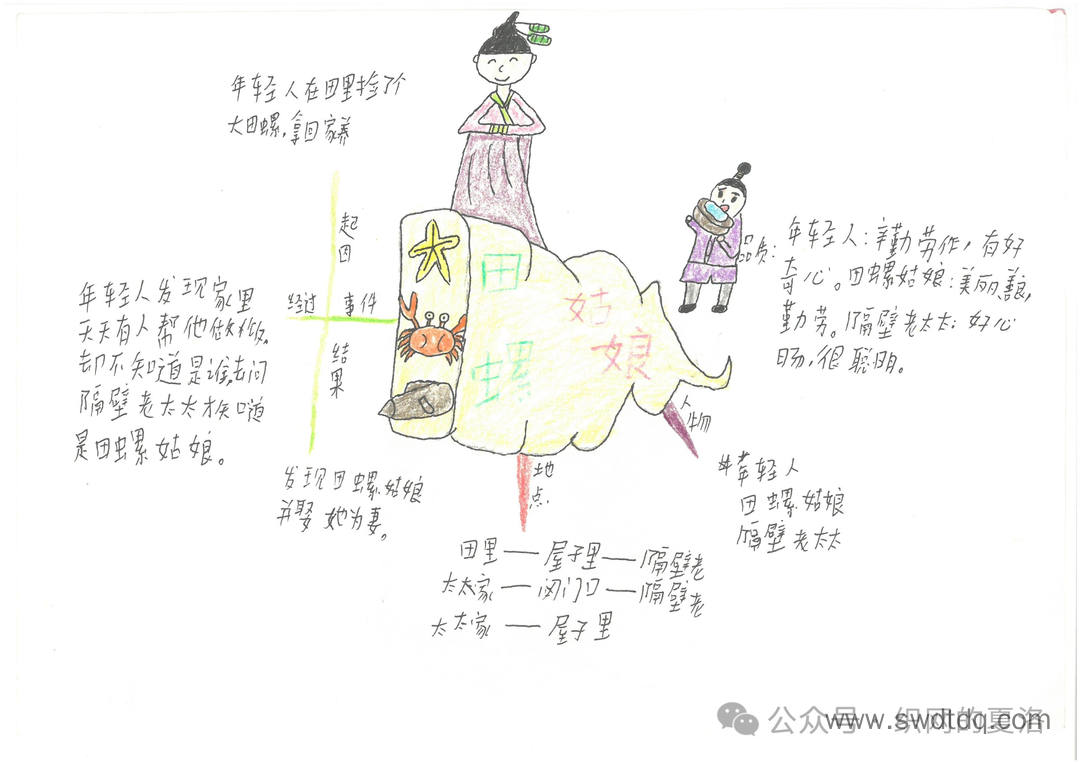 年轻人在田里捡了个
大田螺,拿回家养
起因
经过 事件
结果
年轻人发现家里
天天有人帮他做饭,
却不知道是谁,去问
隔壁老太太才知道
是田螺姑娘。
发现田螺姑娘
并娶她为妻。
田螺
姑娘
品质:
年轻人:辛勤劳作,有好
奇心。田螺姑娘:美丽善良,
勤劳。隔壁老太太:好心
肠,很聪明。
人物
年轻人
田螺姑娘
隔壁老太太
地点
田里——屋子里——隔壁老
太太家——门口——隔壁老
太太家——屋子里
公众号 织网的夏洛
www.swdtdq.com